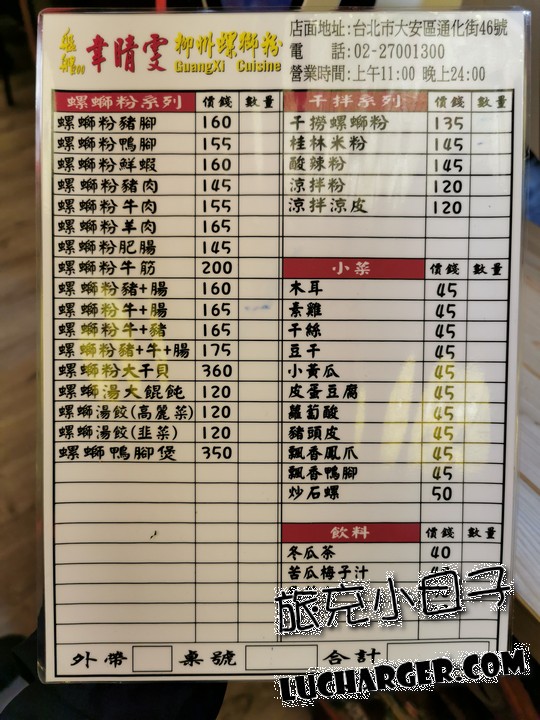 韋晴雯 柳州螺螄粉
GuangXi Cuisine
店面地址:台北市大安區通化街46號
電 話:02-27001300
營業時間:上午11:00 晚上24:00
螺螄粉系列 價錢 數量
螺螄粉豬腳 160
螺螄粉鴨腳 155
螺螄粉鮮蝦 160
螺螄粉豬肉 145
螺螄粉牛肉 155
螺螄粉羊肉 165
螺螄粉肥腸 145
螺螄粉牛筋 200
螺螄粉豬+腸 160
螺螄粉牛+腸 165
螺螄粉牛+豬 165
螺螄粉豬+牛+腸 175
螺螄粉大干貝 360
螺螄湯大餛飩 120
螺螄湯餃(高麗菜) 120
螺螄湯餃(韭菜) 120
螺螄鴨腳煲 350
干拌系列 價錢 數量
干撈螺螄粉 135
桂林米粉 145
酸辣粉 145
涼拌粉 120
涼拌涼皮 120
小菜 價錢 數量
木耳 45
素雞 45
干絲 45
豆干 45
小黃瓜 45
皮蛋豆腐 45
蘿蔔酸 45
豬頭皮 45
飄香鳳爪 45
飄香鴨腳 45
炒石螺 50
飲料 價錢 數量
冬瓜茶 40
苦瓜梅子汁
外帶 桌號 合計
旅充小日子
LUCHARGER.COM